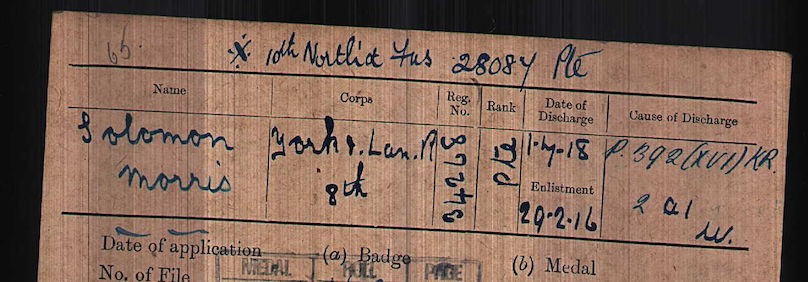 65
※ 10th North'd Fus 28084 Pte
Name Corps Reg. No. Rank Date of Discharge Cause of Discharge
Solomon York & Lan. R 34278 Pte 1-4-18 P. 392 (XVI) KR.
Morris 8th Enlistment 2 a1
29.2.16 W.
Date of application (a) Badge (b) Medal
No. of File MEDAL ROLL PAGE